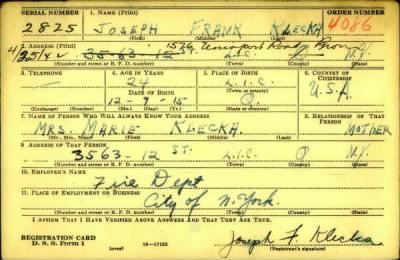 SERIAL NUMBER 1. NAME (Print) ORDER NUMBER
2825 JOSEPH FRANK KLECKA 4086
(First) (Middle) (Last)
2. ADDRESS (Print)
4/25/42 35-63-12 L.I.C. Q N.Y.
(Number and street or R. F. D. number) (Town) (County) (State)
3. TELEPHONE 4. AGE IN YEARS 5. PLACE OF BIRTH 6. COUNTRY OF CITIZENSHIP
24 L.I.C.
DATE OF BIRTH (Town or county)
12-9-15 Q. U.S.A
(Exchange) (Number) (Mo.) (Day) (Yr.) (State or country)
7. NAME OF PERSON WHO WILL ALWAYS KNOW YOUR ADDRESS 8. RELATIONSHIP OF THAT PERSON
MRS. MARIE KLECKA. MOTHER
(Mr., Mrs., Miss) (First) (Middle) (Last)
9. ADDRESS OF THAT PERSON
3563-12 ST. L.I.C. Q N.Y.
(Number and street or R. F. D. number) (Town) (County) (State)
10. EMPLOYER'S NAME
Fire Dept
11. PLACE OF EMPLOYMENT OR BUSINESS
City of N. York.
(Number and street or R. F. D. number) (Town) (County) (State)
I AFFIRM THAT I HAVE VERIFIED ABOVE ANSWERS AND THAT THEY ARE TRUE.
REGISTRATION CARD
D. S. S. Form 1 (over) 16-17105 Joseph F Klecka
(Registrant's signature)